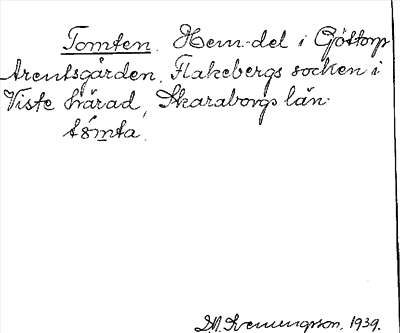 Tomten. Hem-del i Göttorp
Arentsgården, Flakebergs socken i
Viste härad, Skaraborgs län.
tómta.
1939.